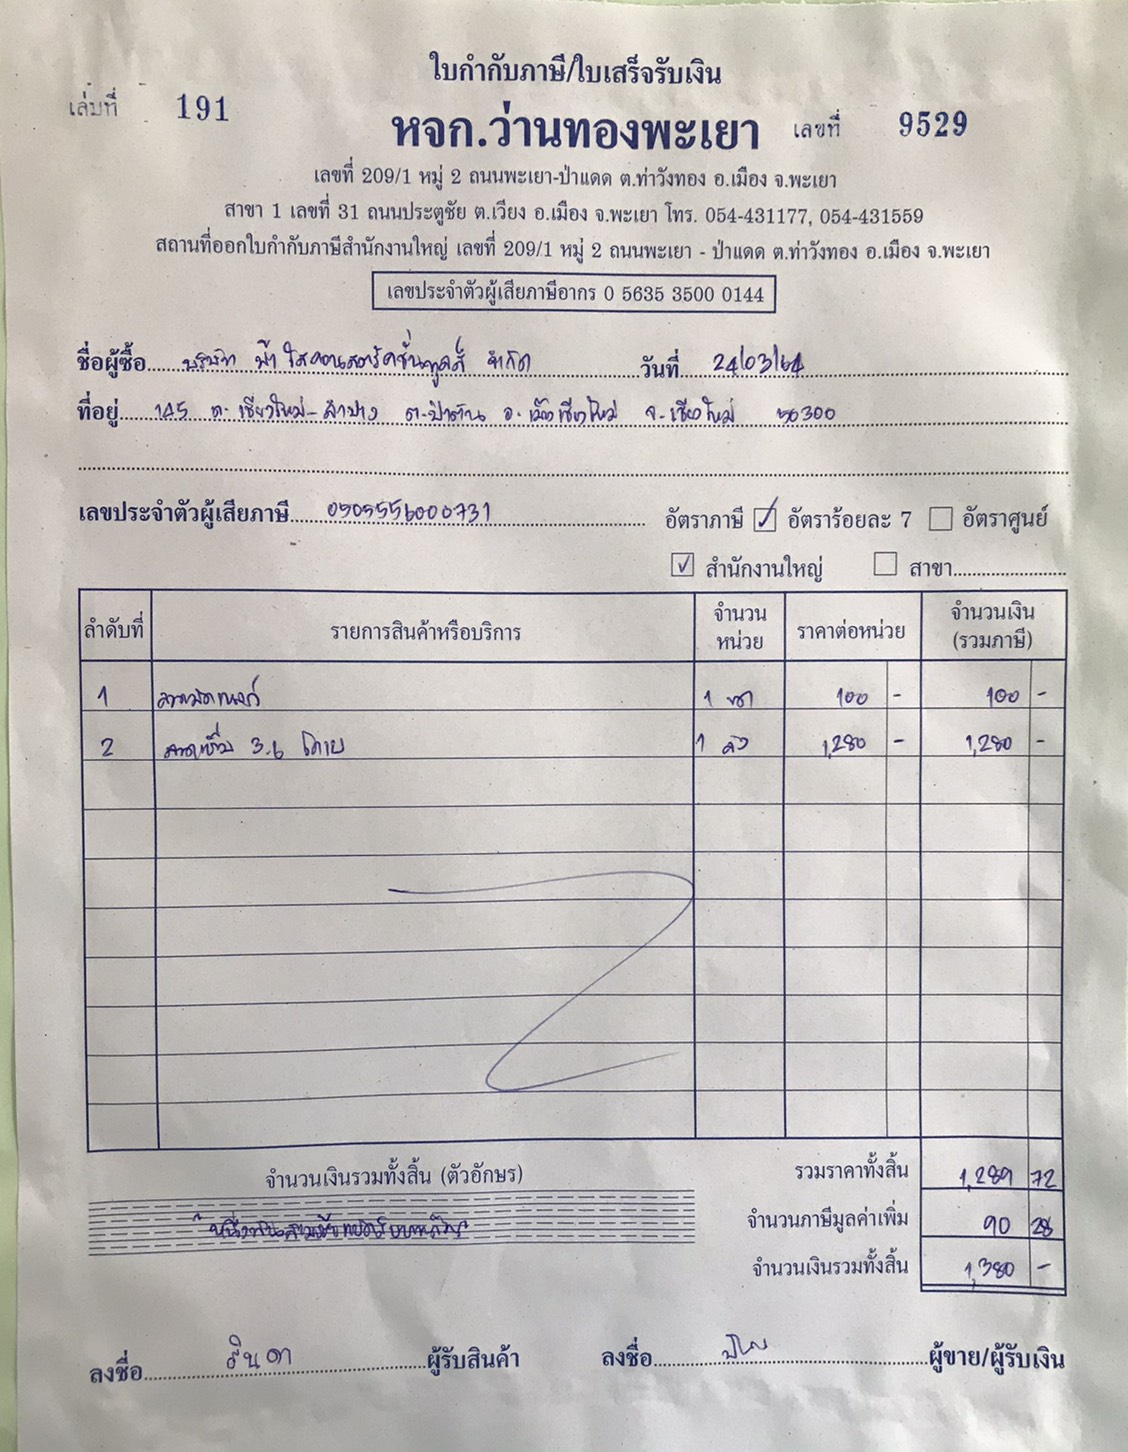 ใบกำกับภาษี/ใบเสร็จรับเงิน
เล่มที่ 191
หจก.ว่านทองพะเยา เลขที่ 9529
เลขที่ 209/1 หมู่ 2 ถนนพะเยา-ป่าแดด ต.ท่าวังทอง อ.เมือง จ.พะเยา
สาขา 1 เลขที่ 31 ถนนประตูชัย ต.เวียง อ.เมือง จ.พะเยา โทร. 054-431177, 054-431559
สถานที่ออกใบกำกับภาษีสำนักงานใหญ่ เลขที่ 209/1 หมู่ 2 ถนนพะเยา - ป่าแดด ต.ท่าวังทอง อ.เมือง จ.พะเยา
เลขประจำตัวผู้เสียภาษีอากร 0 5635 3500 0144
ชื่อผู้ซื้อ บริษัท ฟ้าใสคอนสตรัคชั่นทูลส์ จำกัด วันที่ 24/03/64
ที่อยู่ 145 ถ.เชียงใหม่-ลำปาง ต.ป่าตัน อ.เมืองเชียงใหม่ จ.เชียงใหม่ 50300
เลขประจำตัวผู้เสียภาษี 0505556000731 อัตราภาษี ✓ อัตราร้อยละ 7 อัตราศูนย์
✓ สำนักงานใหญ่ สาขา
ลำดับที่ รายการสินค้าหรือบริการ จำนวนหน่วย ราคาต่อหน่วย จำนวนเงิน (รวมภาษี)
1 100 - 100 -
2 3.6 1 1,280 - 1,280 -
จำนวนเงินรวมทั้งสิ้น (ตัวอักษร) รวมราคาทั้งสิ้น 1,289 72
หนึ่งพันสามร้อยแปดสิบบาทถ้วน จำนวนภาษีมูลค่าเพิ่ม 90 28
จำนวนเงินรวมทั้งสิ้น 1,380 -
ลงชื่อ ผู้รับสินค้า ลงชื่อ ผู้ขาย/ผู้รับเงิน